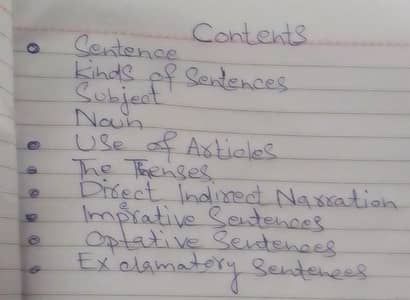 Contents
• Sentence
Kinds of Sentences
Subject
Noun
• Use of Articles
• The Thenses
• Direct Indirect Narration
• Imprative Sentences
• Optative Sentences
• Exclamatory Sentences